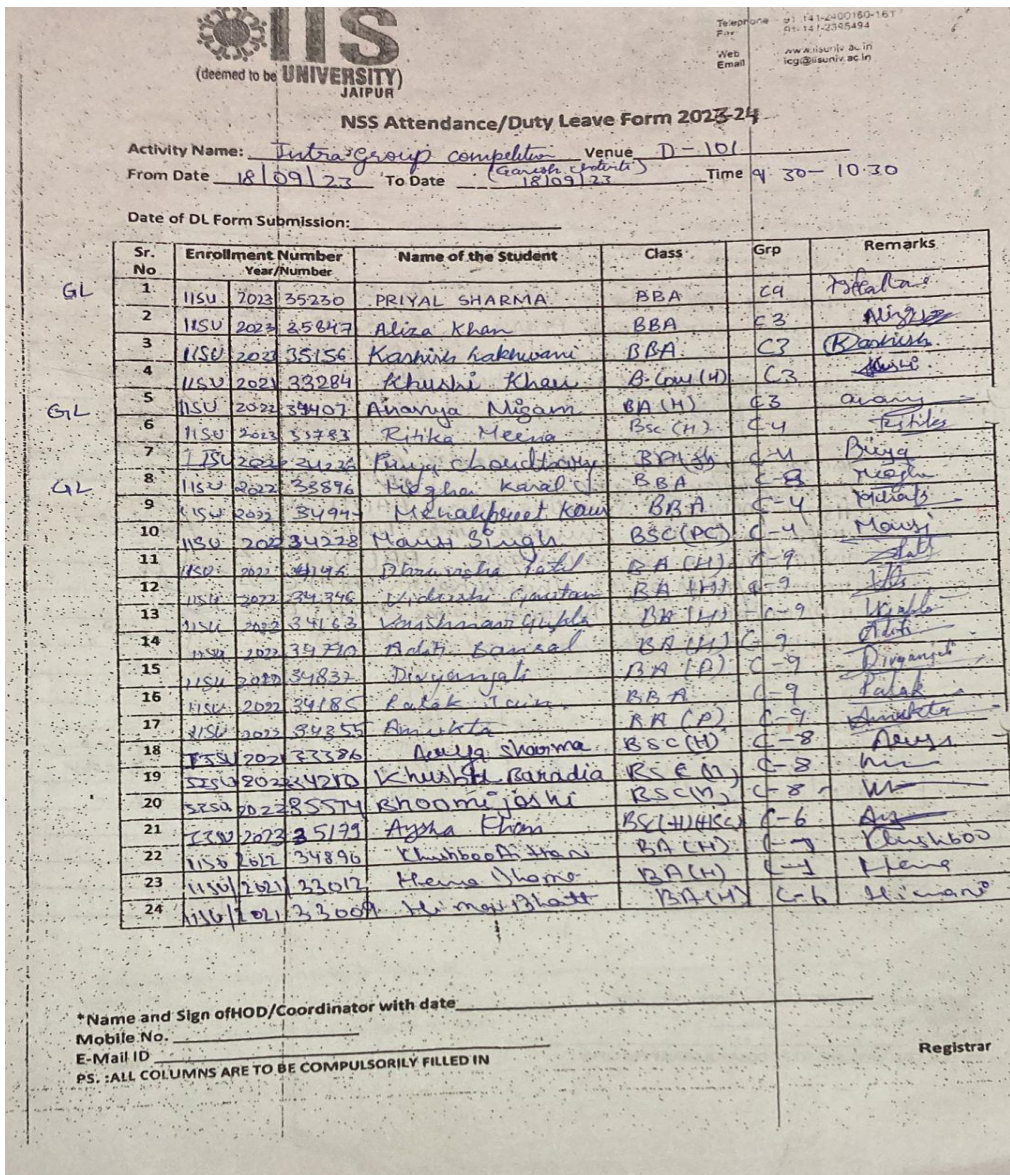 IIS
(deemed to be UNIVERSITY)
JAIPUR
Telephone 91 141-2400160-161
Fax 91-141-2395494
Web www.iisuniv.ac.in
Email icg@iisuniv.ac.in
NSS Attendance/Duty Leave Form 2023-24
Activity Name: Intra group competition Venue D-101
(Ganesh Chaturthi)
From Date 18/09/23 To Date 18/09/23 Time 9:30-10.30
Date of DL Form Submission:
Sr. No Enrollment Number Year/Number Name of the Student Class Grp Remarks
GL 1 IISU 2023 35230 PRIYAL SHARMA BBA C9
2 IISU 2023 35847 Aliza Khan BBA C3
3 IISU 2023 35156 Kashish Lakhwani BBA C3 Kashish
4 IISU 2021 33284 Khushi Khan B.Com (H) C3
GL 5 IISU 2022 34407 Ananya Nigam BA (H) C3
6 IISU 2023 Ritika Meena BSc (H) C4 Ritika
7 IISU choudhary
GL 8 IISU 2022 33896 Megha BBA C-8 Megha
9 IISU 2022 Mehakpreet Kaur BBA C-4 Mehak
10 IISU 34228 Mansi Singh BSC(PC) C-4 Mansi
11 IISU 2022 Patel BA (H) C-9
12 IISU 2022 34346 Gautam BA (H) C-9
13 IISU 34163 Gupta BA (H) C-9
14 IISU 2022 Aditi Bansal BA (H) C-9 Aditi
15 IISU 34837 Divyanjali BA (P) C-9 Divyanjali
16 IISU 2022 34185 Palak Jain BBA C-9 Palak
17 IISU 34355 Amukta BA (P) C-9 Amukta
18 IISU 2021 33386 Sharma BSC (H) C-8
19 34210 Khushi Baradia C-8
20 2022 Bhoomi Joshi C-8
21 IISU 2023 35179 Aysha Khan C-6
22 IISU 34896 Khushboo BA (H) Khushboo
23 IISU 2021 33012 BA (H)
24 IISU 2021 33009 Bhatt BA (H) C-6 Himani
*Name and Sign ofHOD/Coordinator with date
Mobile No.
E-Mail ID
Registrar
PS. :ALL COLUMNS ARE TO BE COMPULSORILY FILLED IN